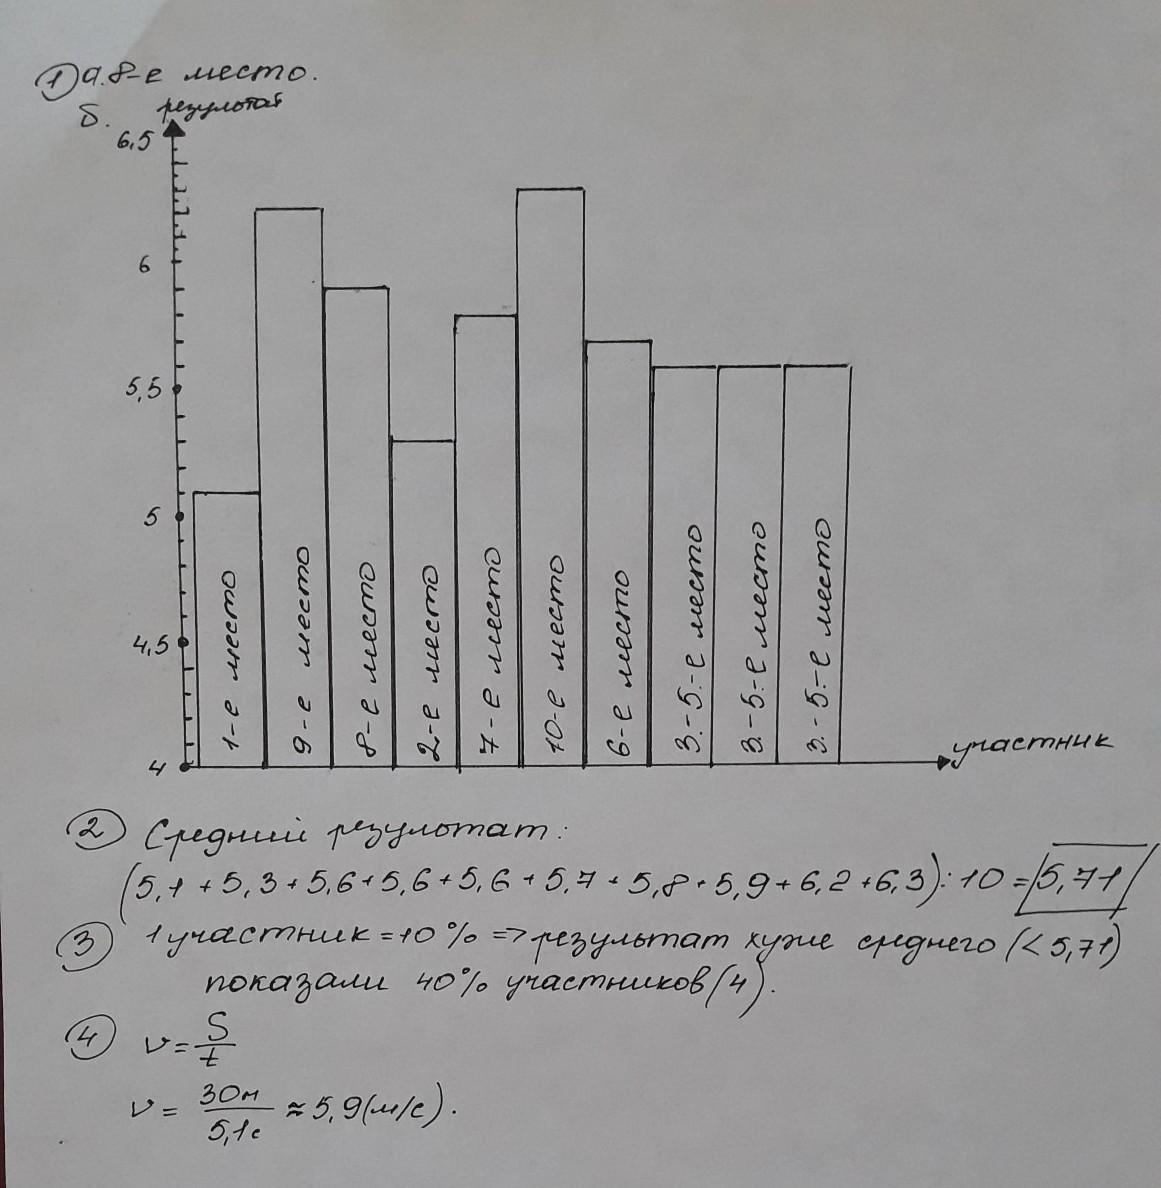 ① а. 8-е место.
б. результат
6,5
6
5,5
5
4,5
4
1-е место
9-е место
8-е место
2-е место
7-е место
10-е место
6-е место
3.-5.-е место
3.-5.-е место
3.-5.-е место
участник
② Средний результат:
(5,1 + 5,3 + 5,6 + 5,6 + 5,6 + 5,7 + 5,8 + 5,9 + 6,2 + 6,3) : 10 = 5,71
③ 1 участник = 10 % => результат хуже среднего (< 5,71)
показали 40% участников (4).
④ v = S/t
v = 30м/5,1с ≈ 5,9 (м/с).